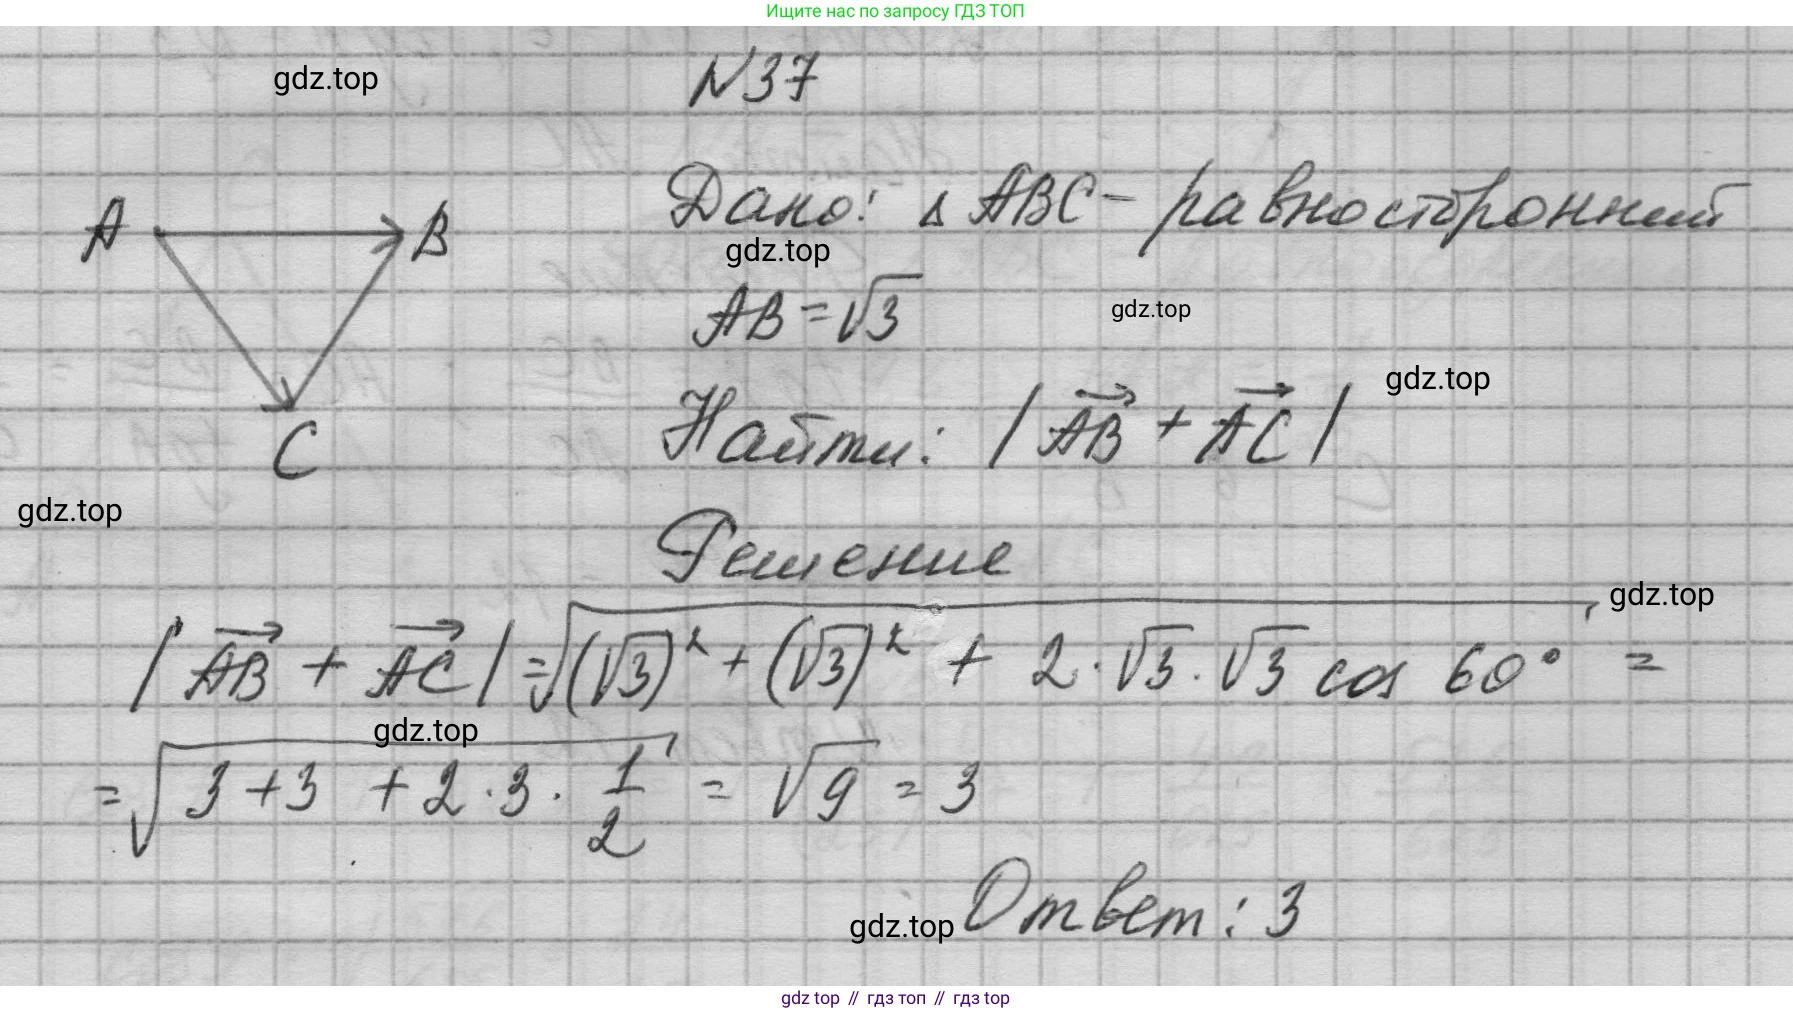 Ищите нас по запросу ГДЗ ТОП
gdz.top
N 37
A B
C
Дано: Δ ABC - равносторонний
gdz.top
AB = √3
gdz.top
gdz.top
Найти: |AB + AC|
gdz.top
Решение
gdz.top
|AB + AC| = √(√3)² + (√3)² + 2 · √3 · √3 cos 60° =
gdz.top
= √3 + 3 + 2 · 3 · 1/2 = √9 = 3
gdz.top
Ответ: 3
gdz top // гдз топ // гдз top